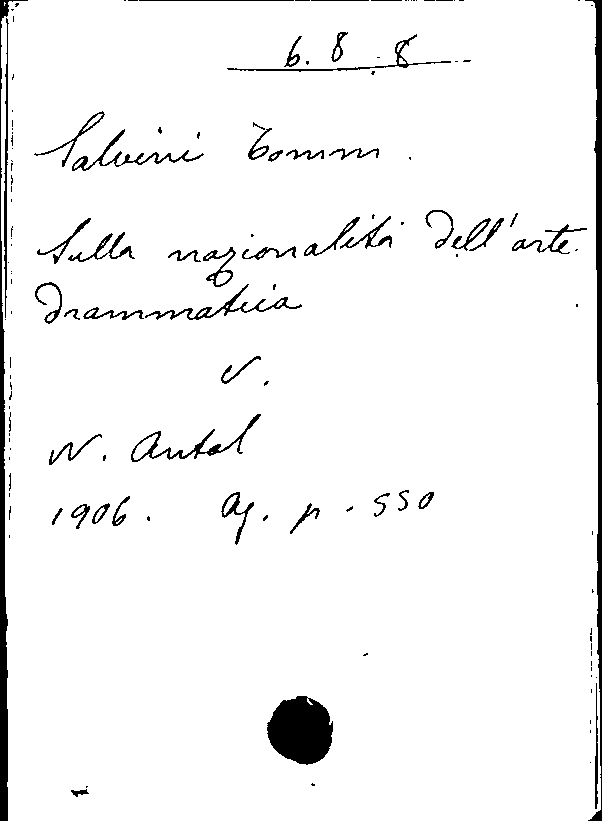 6. 8 . 8
Salvini Tomm.
Sulla nazionalità dell'arte
drammatica
V.
N. Antol
1906. Ag. p. 550